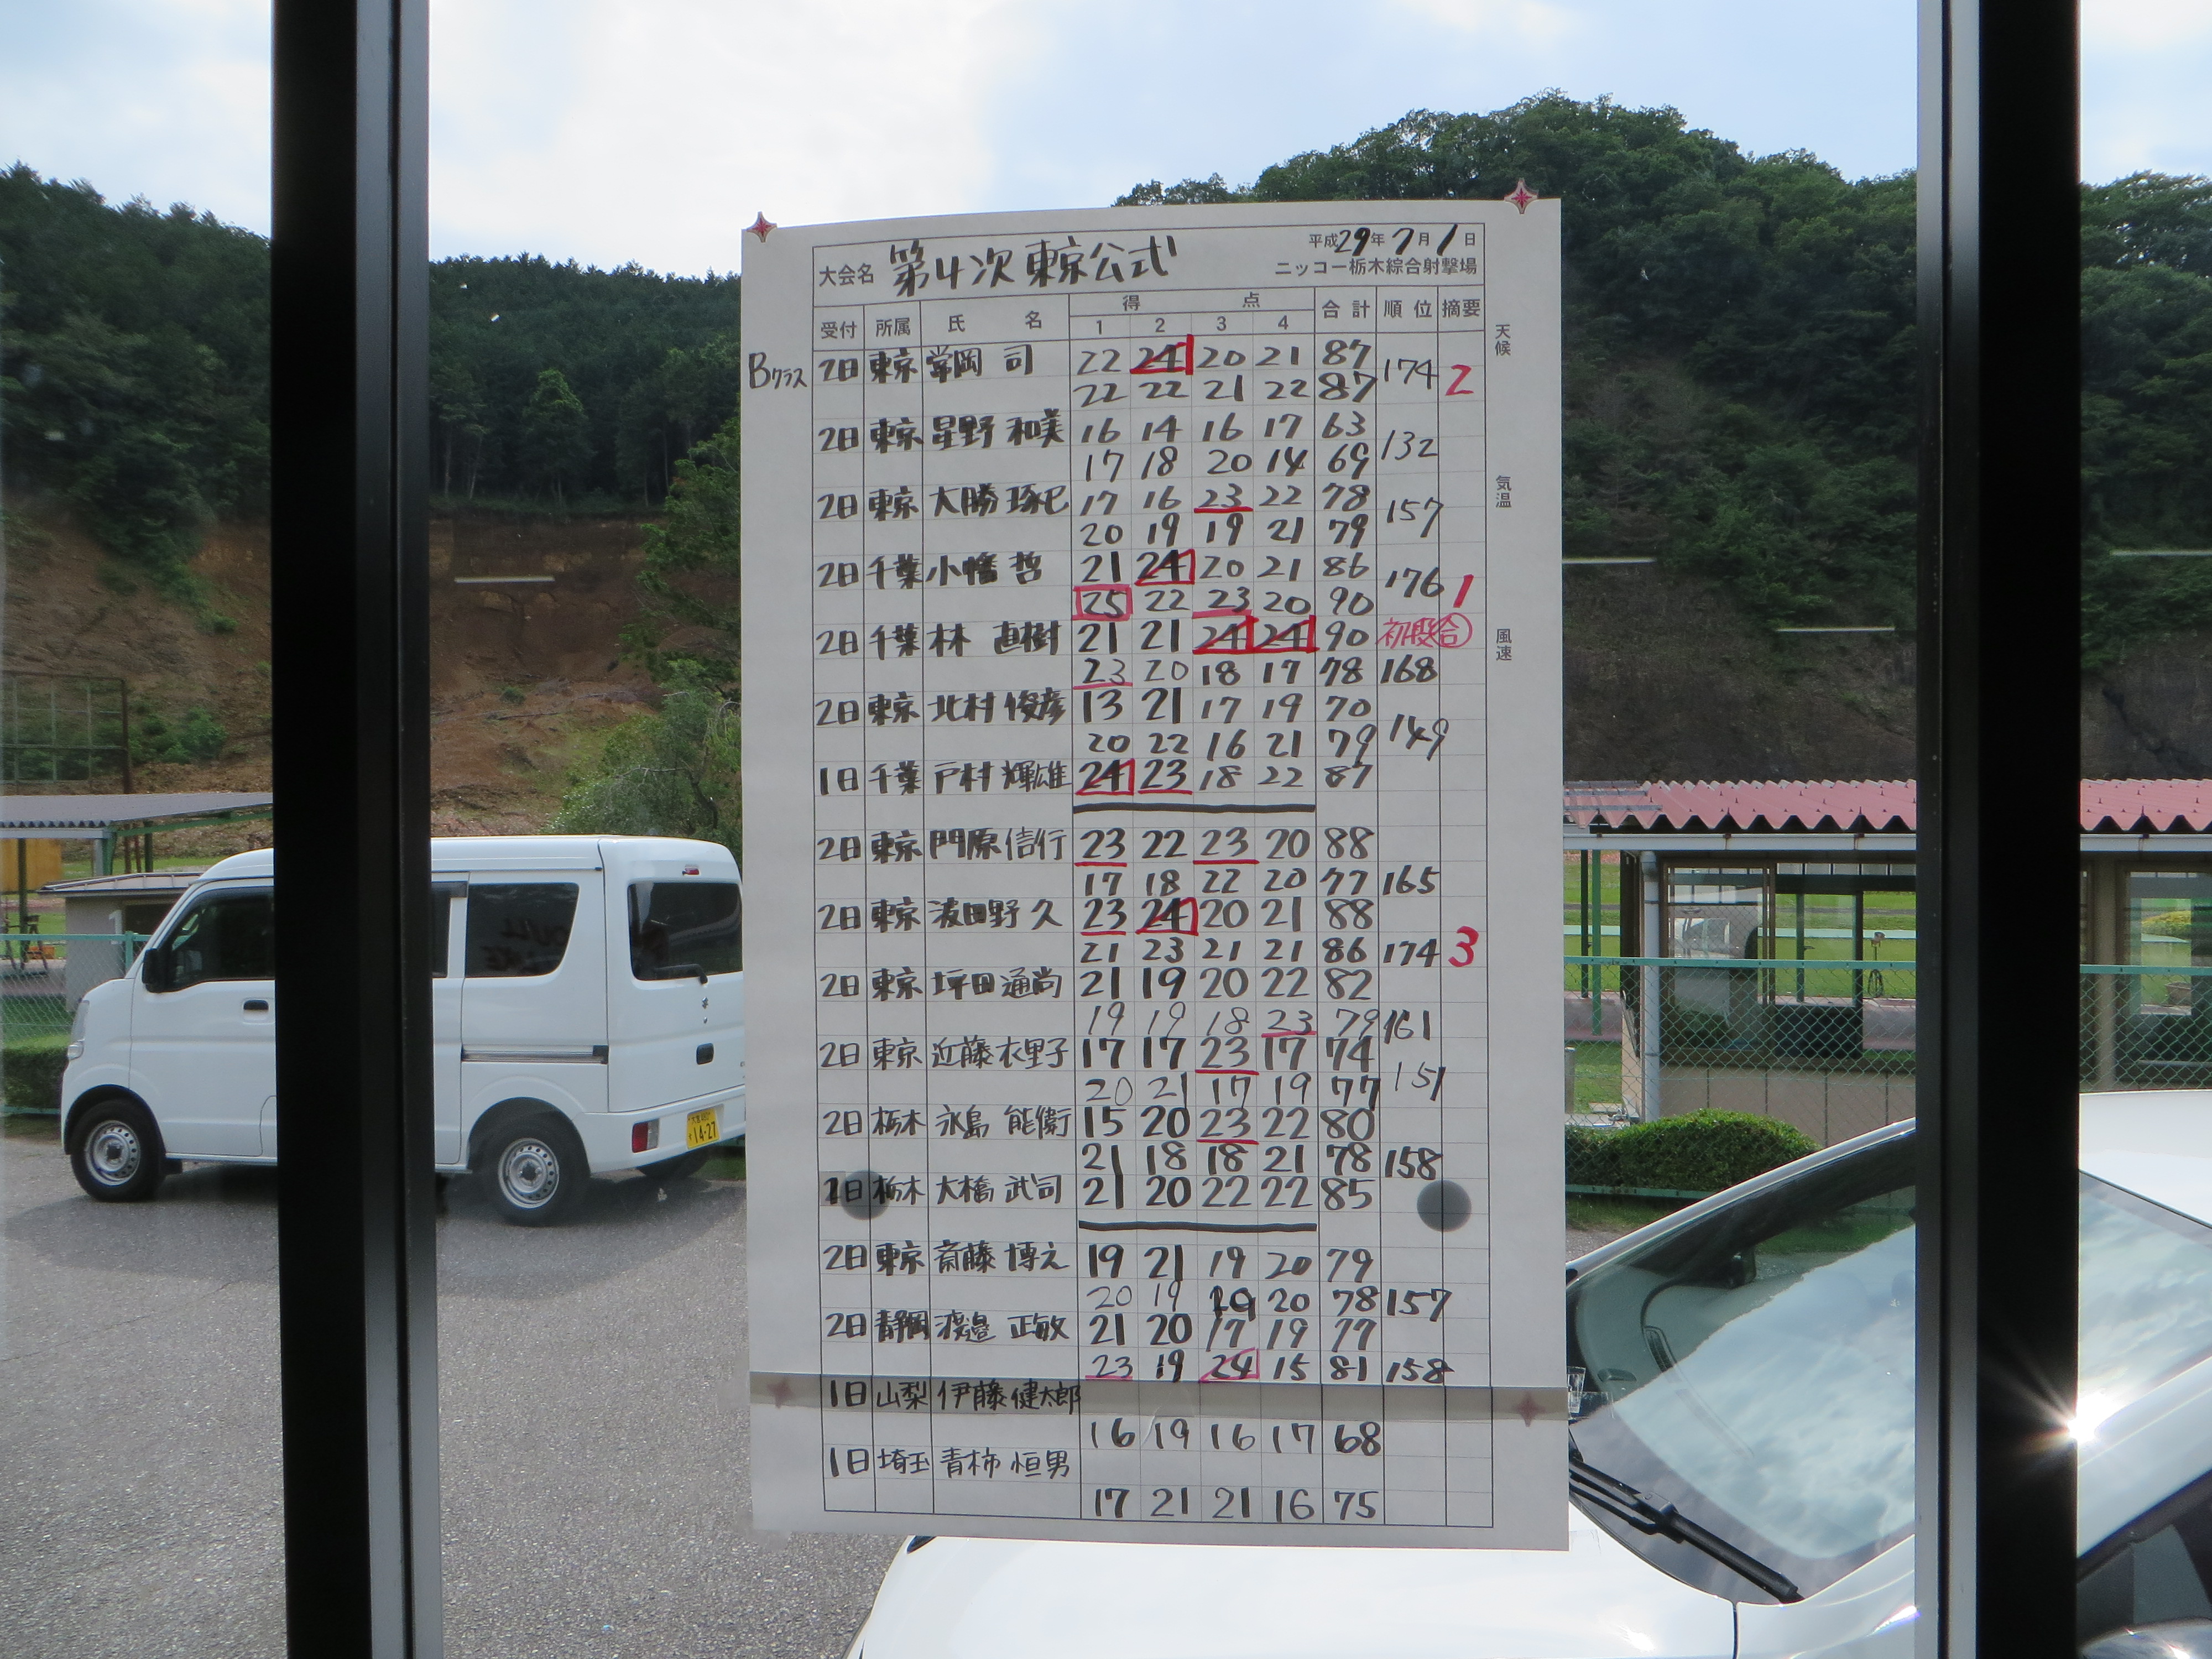 平成29年7月1日
大会名 第4次東京公式
ニッコー栃木綜合射撃場
得 点
受付 所属 氏 名 1 2 3 4 合計 順位 摘要
天候
気温
風速
Bクラス 2日 東京 常岡 司 22 24 20 21 87
22 22 21 22 87 174 2
2日 東京 星野 和美 16 14 16 17 63
17 18 20 14 69 132
2日 東京 大勝 琢巳 17 16 23 22 78
20 19 19 21 79 157
2日 千葉 小幡 哲 21 24 20 21 86
25 22 23 20 90 176 1
2日 千葉 林 直樹 21 21 24 24 90 初段合
23 20 18 17 78 168
2日 東京 北村 俊彦 13 21 17 19 70
20 22 16 21 79 149
1日 千葉 戸村 輝雄 24 23 18 22 87
2日 東京 門原 信行 23 22 23 20 88
17 18 22 20 77 165
2日 東京 波田野 久 23 24 20 21 88
21 23 21 21 86 174 3
2日 東京 坪田 通尚 21 19 20 22 82
19 19 18 23 79 161
2日 東京 近藤 衣里子 17 17 23 17 74
20 21 17 19 77 151
2日 栃木 永島 能衛 15 20 23 22 80
21 18 18 21 78 158
1日 栃木 大橋 武司 21 20 22 22 85
2日 東京 斎藤 博之 19 21 19 20 79
20 19 19 20 78 157
2日 静岡 渡邉 正敏 21 20 17 19 77
23 19 24 15 81 158
1日 山梨 伊藤 健太郎
16 19 16 17 68
1日 埼玉 青柿 恒男
17 21 21 16 75
14-27